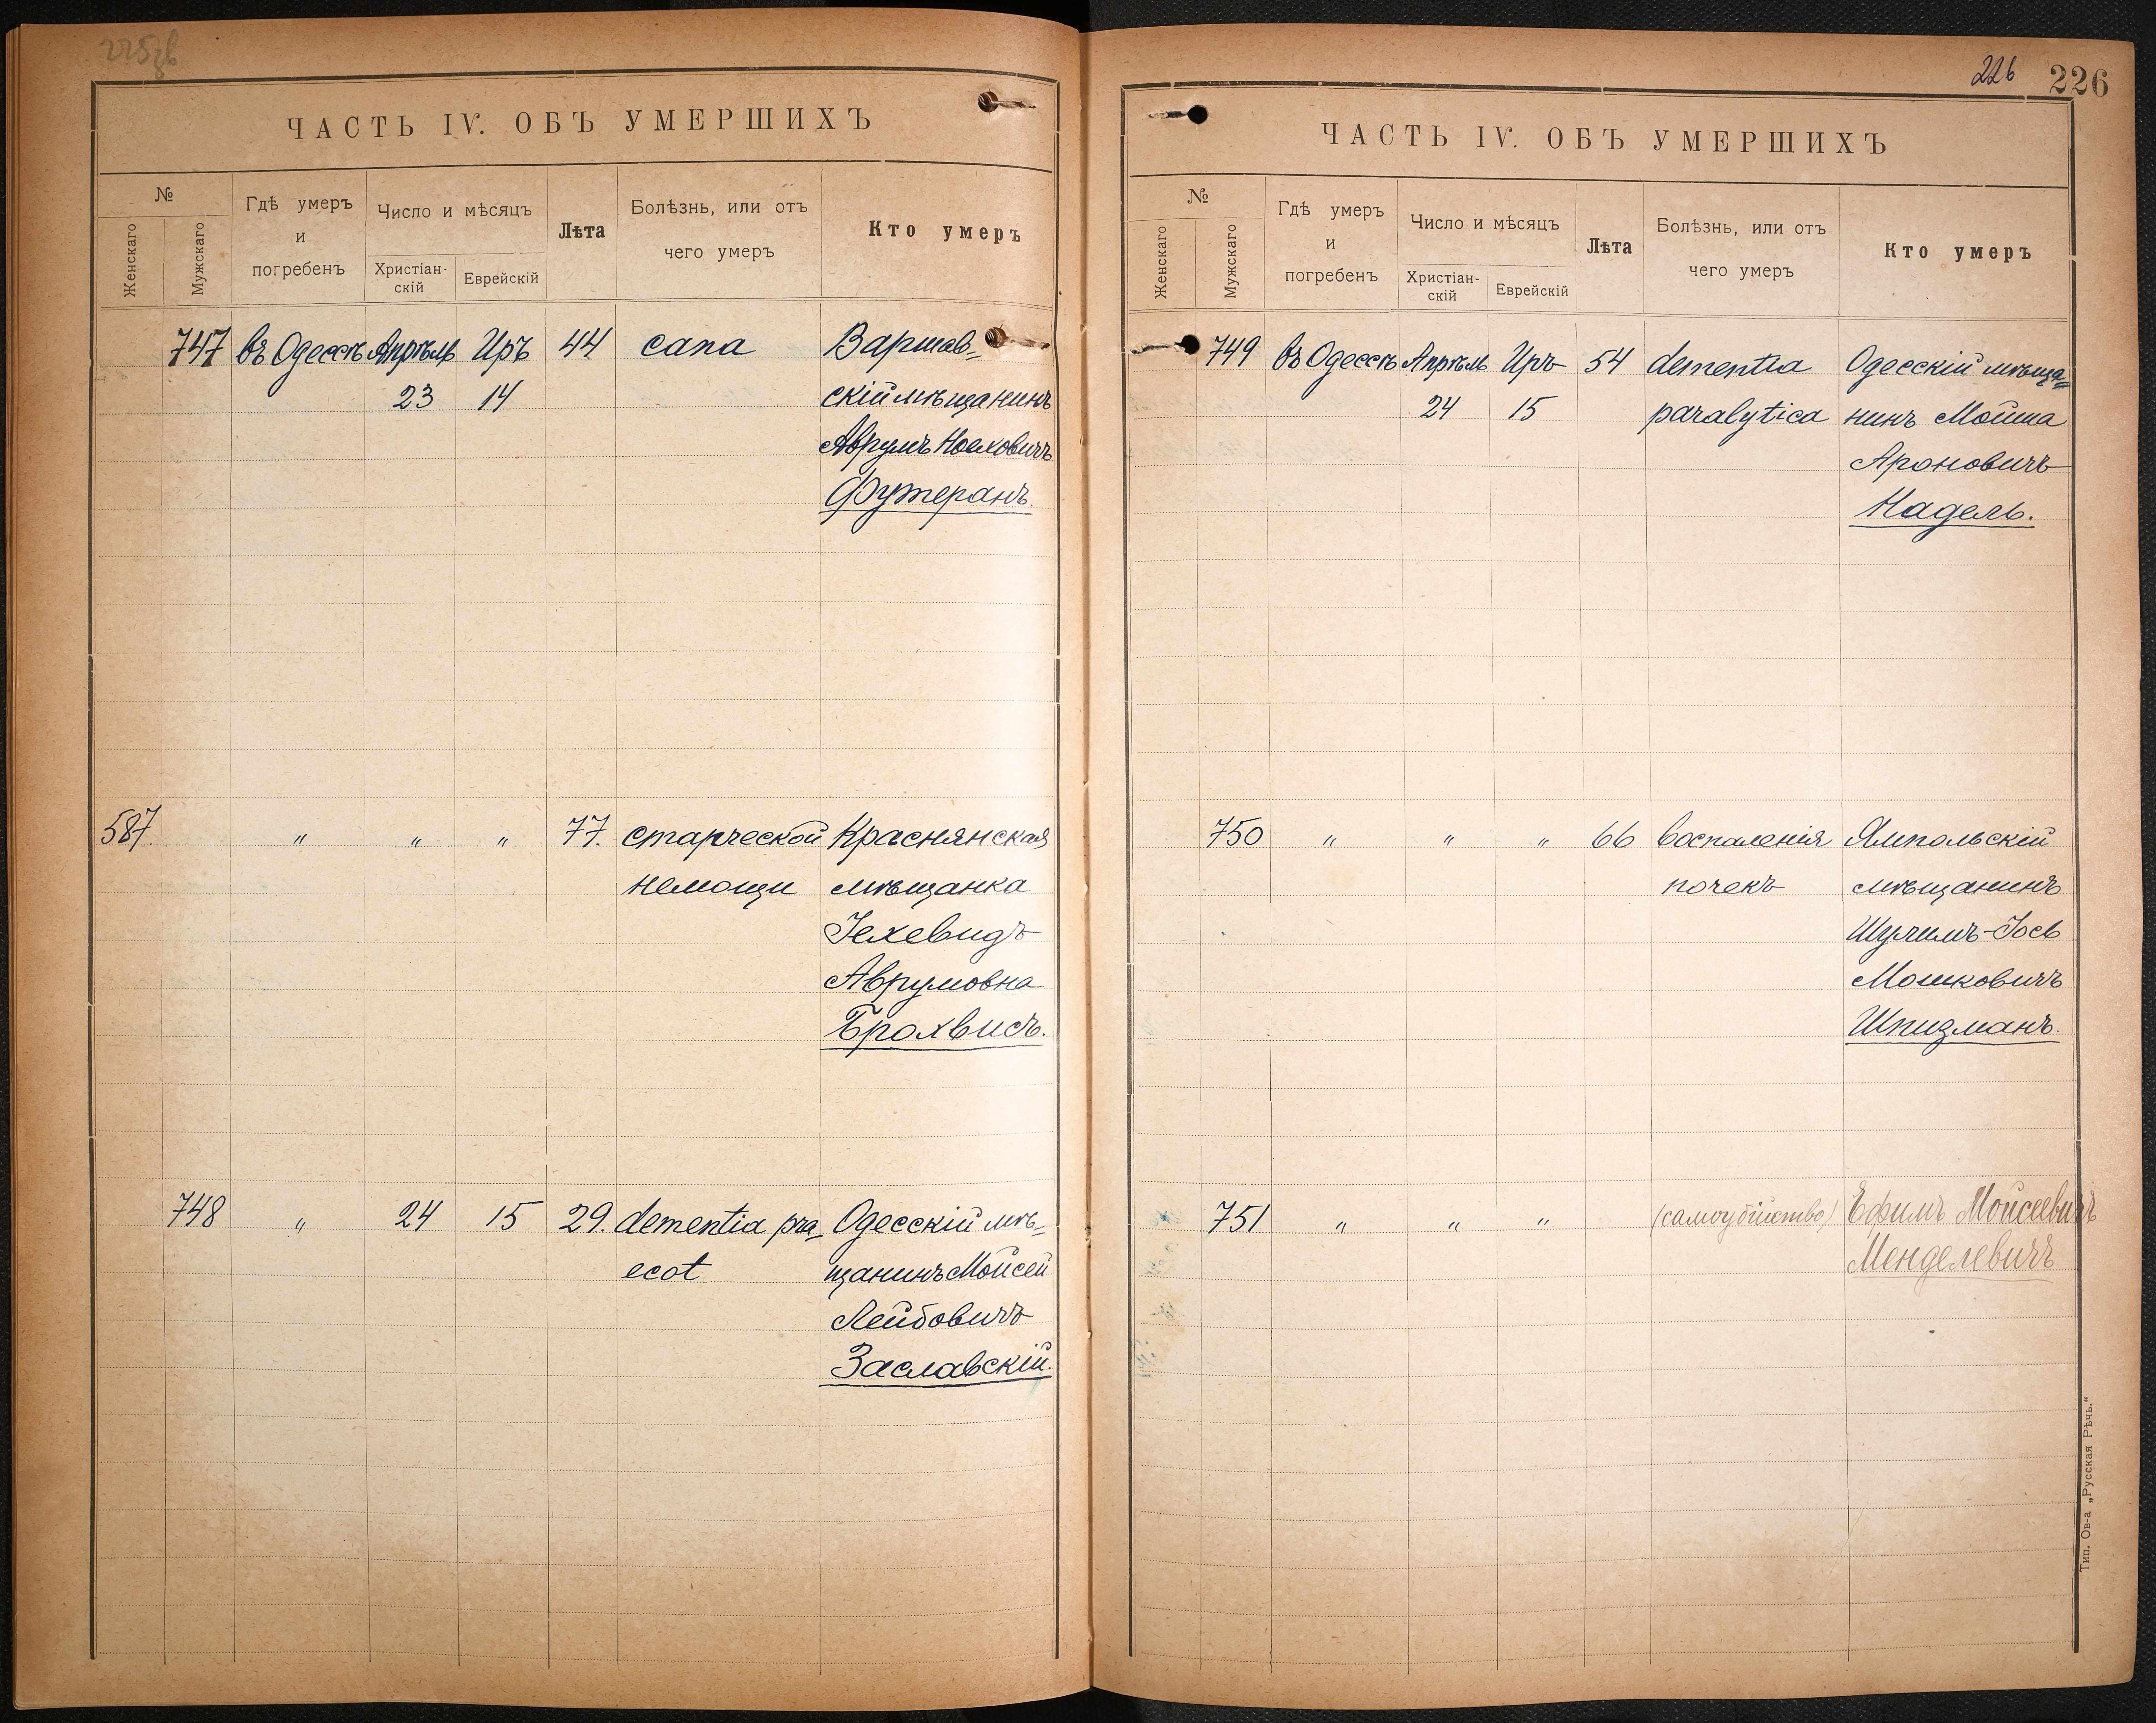 225зв
ЧАСТЬ IV. ОБЪ УМЕРШИХЪ
№
Женскаго
Мужскаго
Гдѣ умеръ
и
погребенъ
Число и мѣсяцъ
Христіан-
скій
Еврейскій
Лѣта
Болѣзнь, или отъ
чего умеръ
Кто умеръ
747 въ Одессѣ Апрѣль Иръ 44 сапа Варшав=
23 14 скій мѣщанинъ
Аврумъ Ноеховичъ
Футеранъ.
587. " " " 77. старческой Краснянская
немощи мѣщанка
Іехевидъ
Аврумовна
Брохвисъ.
748 " 24 15 29. dementia pra= Одесскій мѣ=
ecot щанинъ Мойсей
Лейбовичъ
Заславскій.
226 226
ЧАСТЬ IV. ОБЪ УМЕРШИХЪ
№
Женскаго
Мужскаго
Гдѣ умеръ
и
погребенъ
Число и мѣсяцъ
Христіан-
скій
Еврейскій
Лѣта
Болѣзнь, или отъ
чего умеръ
Кто умеръ
749 въ Одессѣ Апрѣль Иръ 54 dementia Одесскій мѣща=
24 15 paralytica нинъ Мойша
Ароновичъ
Надель.
750 " " " 66 воспаленія Ямпольскій
почекъ мѣщанинъ
Шулимъ-Іось
Мошковичъ
Шпизманъ.
751 " " " (самоубійство) Ефимъ Мойсеевичъ
Менделевичъ
Тип. Ов-а „Русская Рѣчь."